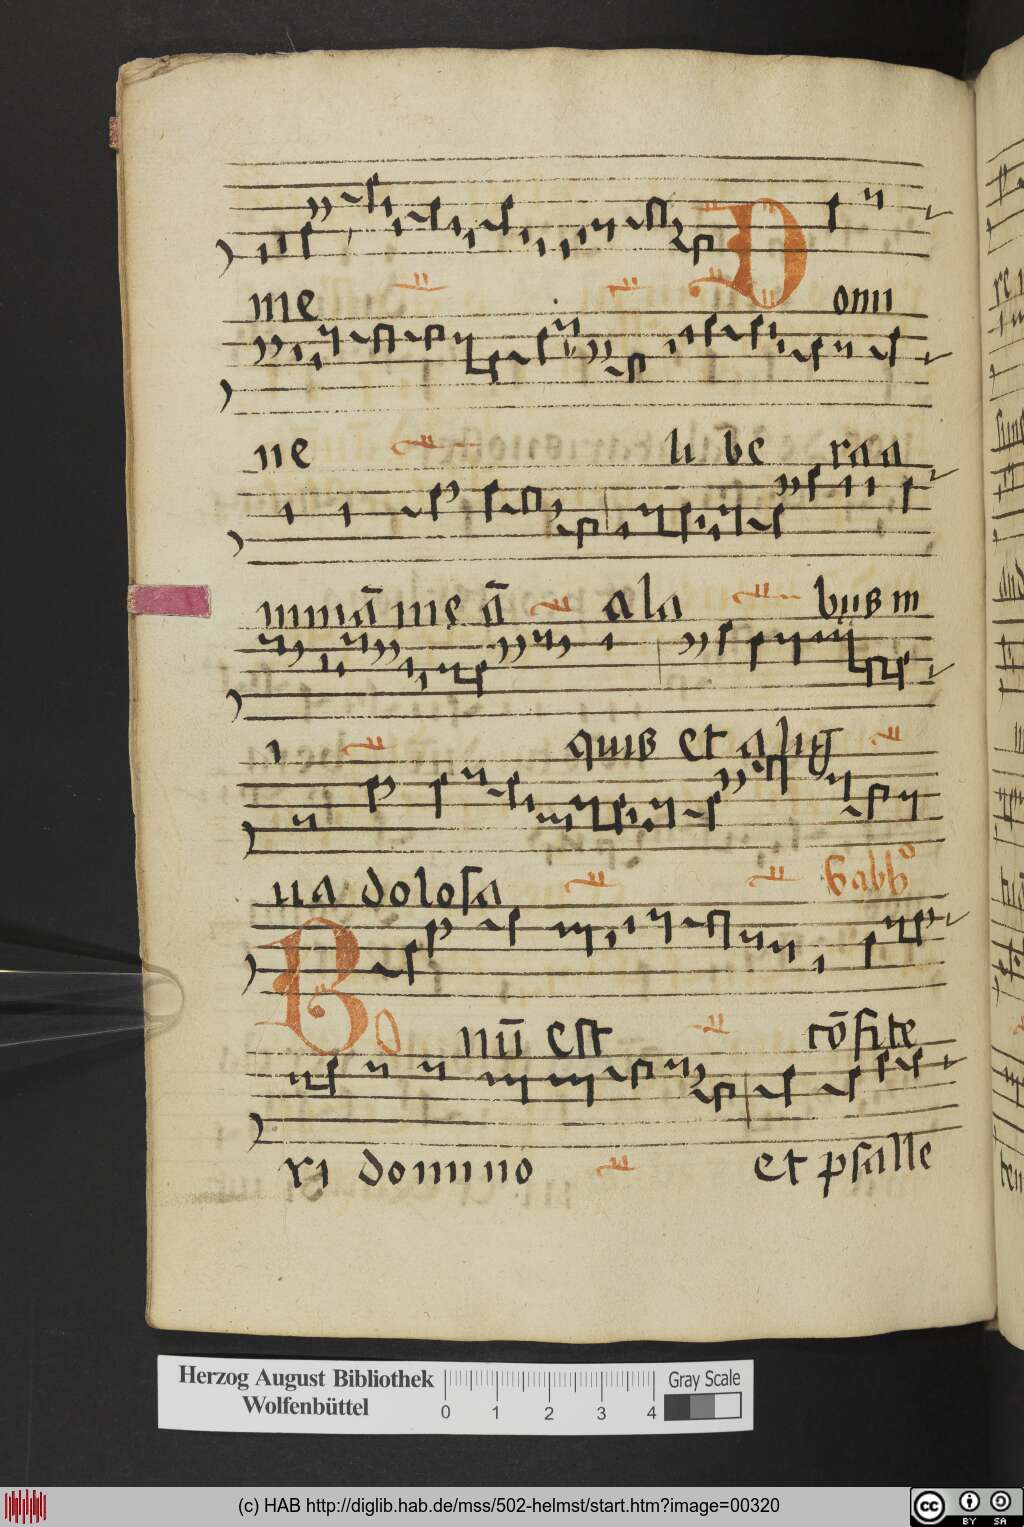 me Domi
ne li be ra a
nimā meā a la bijs in
i quis et a lig
ua dolosa Sabbo
Bo nū est cōfite
ri domino et psalle
Herzog August Bibliothek
Wolfenbüttel
0 1 2 3 4
Gray Scale
(c) HAB http://diglib.hab.de/mss/502-helmst/start.htm?image=00320
cc BY SA